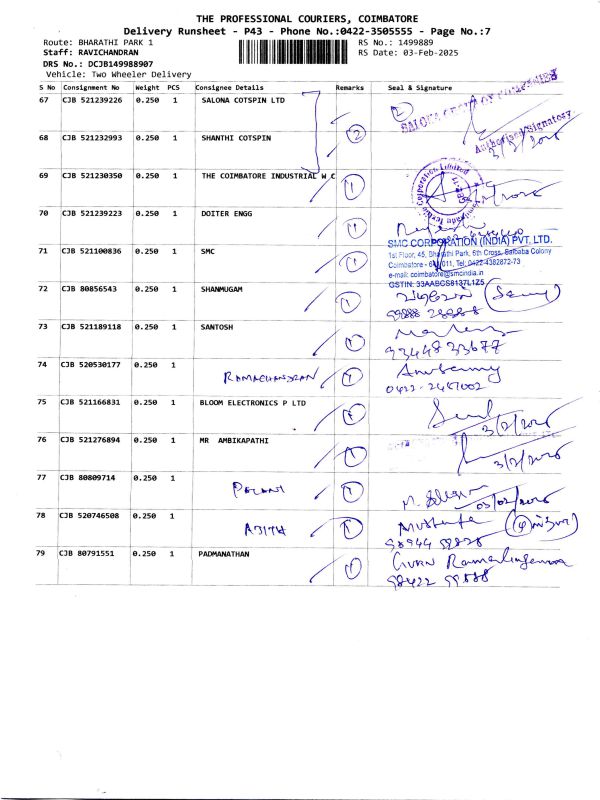 THE PROFESSIONAL COURIERS, COIMBATORE
Delivery Runsheet - P43 - Phone No.:0422-3505555 - Page No.:7
Route: BHARATHI PARK 1 RS No.: 1499889
Staff: RAVICHANDRAN RS Date: 03-Feb-2025
DRS No.: DCJB149988907
Vehicle: Two Wheeler Delivery
S No Consignment No Weight PCS Consignee Details Remarks Seal & Signature
67 CJB 521239226 0.250 1 SALONA COTSPIN LTD
2
Authorised Signatory
68 CJB 521232993 0.250 1 SHANTHI COTSPIN
69 CJB 521230350 0.250 1 THE COIMBATORE INDUSTRIAL W C 1
70 CJB 521239223 0.250 1 DOITER ENGG 1
SMC CORPORATION (INDIA) PVT. LTD.
71 CJB 521100836 0.250 1 SMC 1
1st Floor, 45, Bharathi Park, 6th Cross, Saibaba Colony
Coimbatore - 641 011, Tel: 0422-4382872-73
e-mail: coimbatore@smcindia.in
GSTIN: 33AABCS8137L1Z5
72 CJB 80856543 0.250 1 SHANMUGAM 1
73 CJB 521189118 0.250 1 SANTOSH 1
93448 33677
74 CJB 520530177 0.250 1 RAMACHANDRAN 1
0422-2457002
75 CJB 521166831 0.250 1 BLOOM ELECTRONICS P LTD 1
76 CJB 521276894 0.250 1 MR AMBIKAPATHI 1
77 CJB 80809714 0.250 1 PALANI 1
78 CJB 520746508 0.250 1 AJITH 1 Mustafa
79 CJB 80791551 0.250 1 PADMANATHAN 1